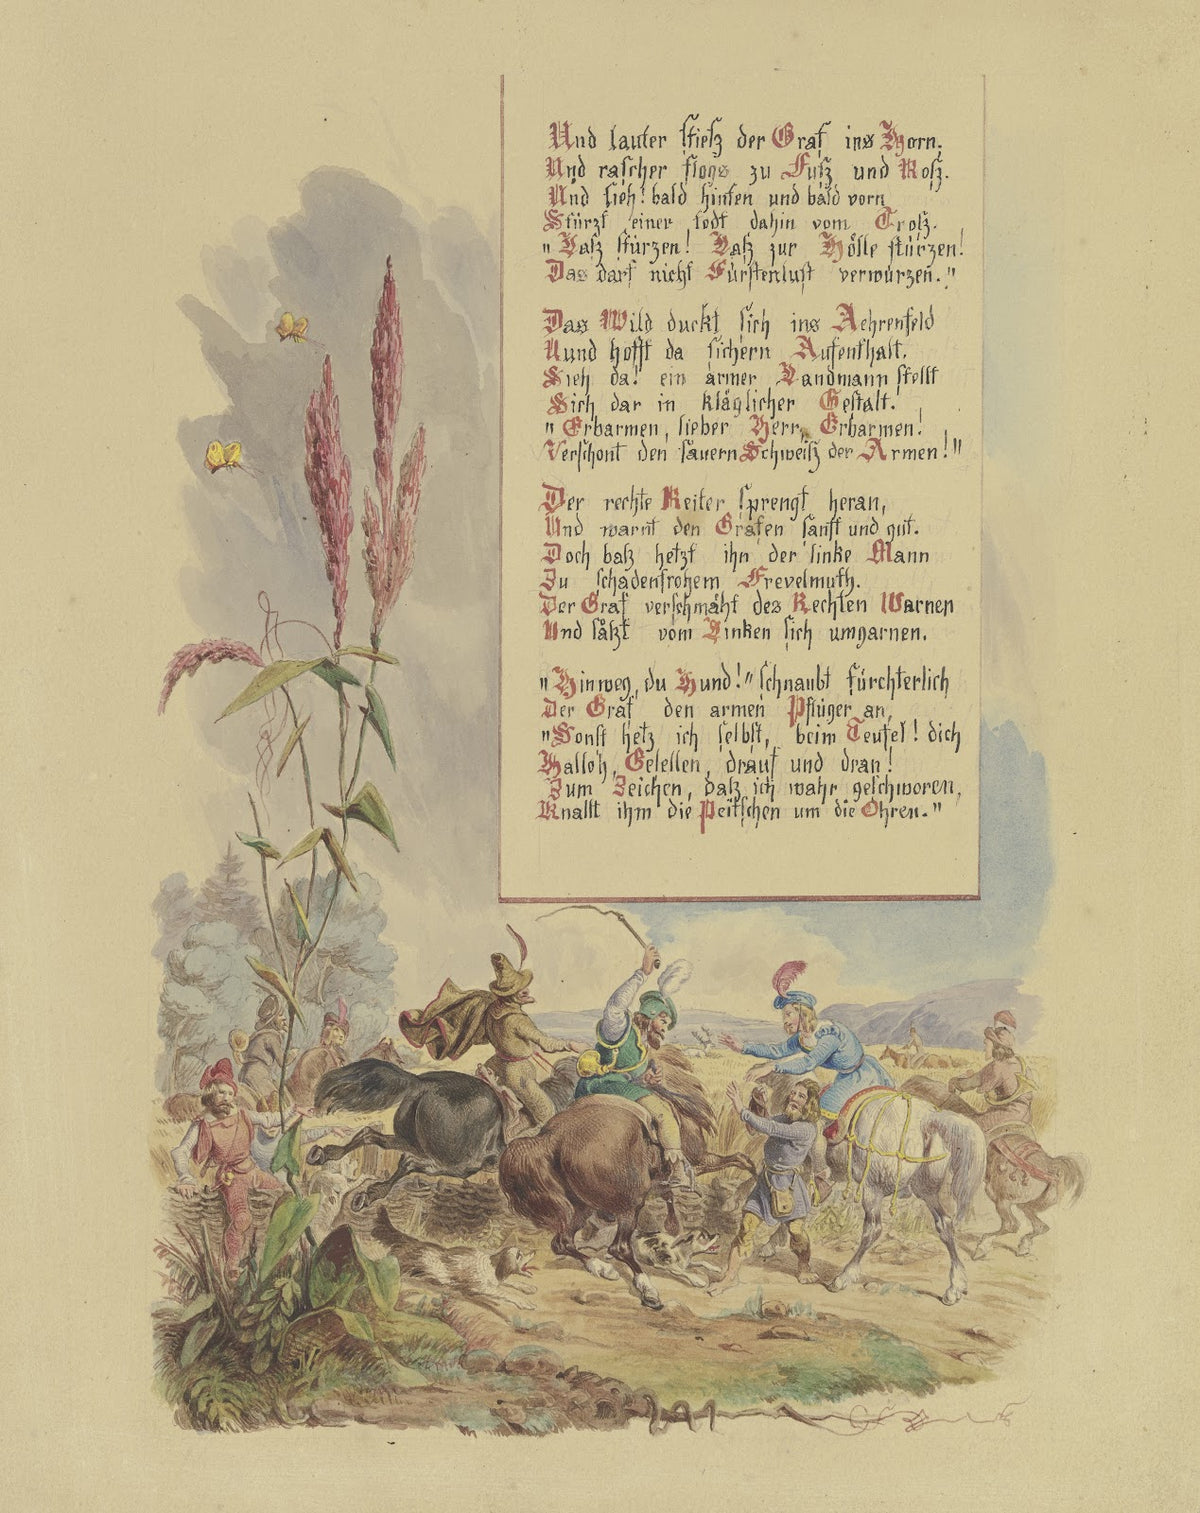 Und lauter stieß der Graf ins Horn,
Und rascher flogs zu Fuß und Roß.
Und sieh! bald hinten und bald vorn
Stürzt einer todt dahin vom Troß.
"Laß stürzen! Laß zur Hölle stürzen!
Das darf nicht Fürstenlust verwürzen."
Das Wild duckt sich ins Aehrenfeld
Uund hofft da sichern Aufenthalt.
Sieh da! ein armer Landmann stellt
Sich dar in kläglicher Gestalt.
"Erbarmen, lieber Herr, Erbarmen!
Verschont den sauern Schweiß der Armen!"
Der rechte Reiter sprengt heran,
Und warnt den Grafen sanft und gut.
Doch baß hetzt ihn der linke Mann
Zu schadenfrohem Frevelmuth.
Der Graf verschmäht des Rechten Warnen
Und läßt vom Linken sich umgarnen.
"Hinweg, du Hund!" schnaubt fürchterlich
Der Graf den armen Pflüger an,
"Sonst hetz ich selbst, beim Teufel! dich
Halloh, Gesellen, drauf und dran!
Zum Zeichen, daß ich wahr geschworen,
Knallt ihm die Peitschen um die Ohren."